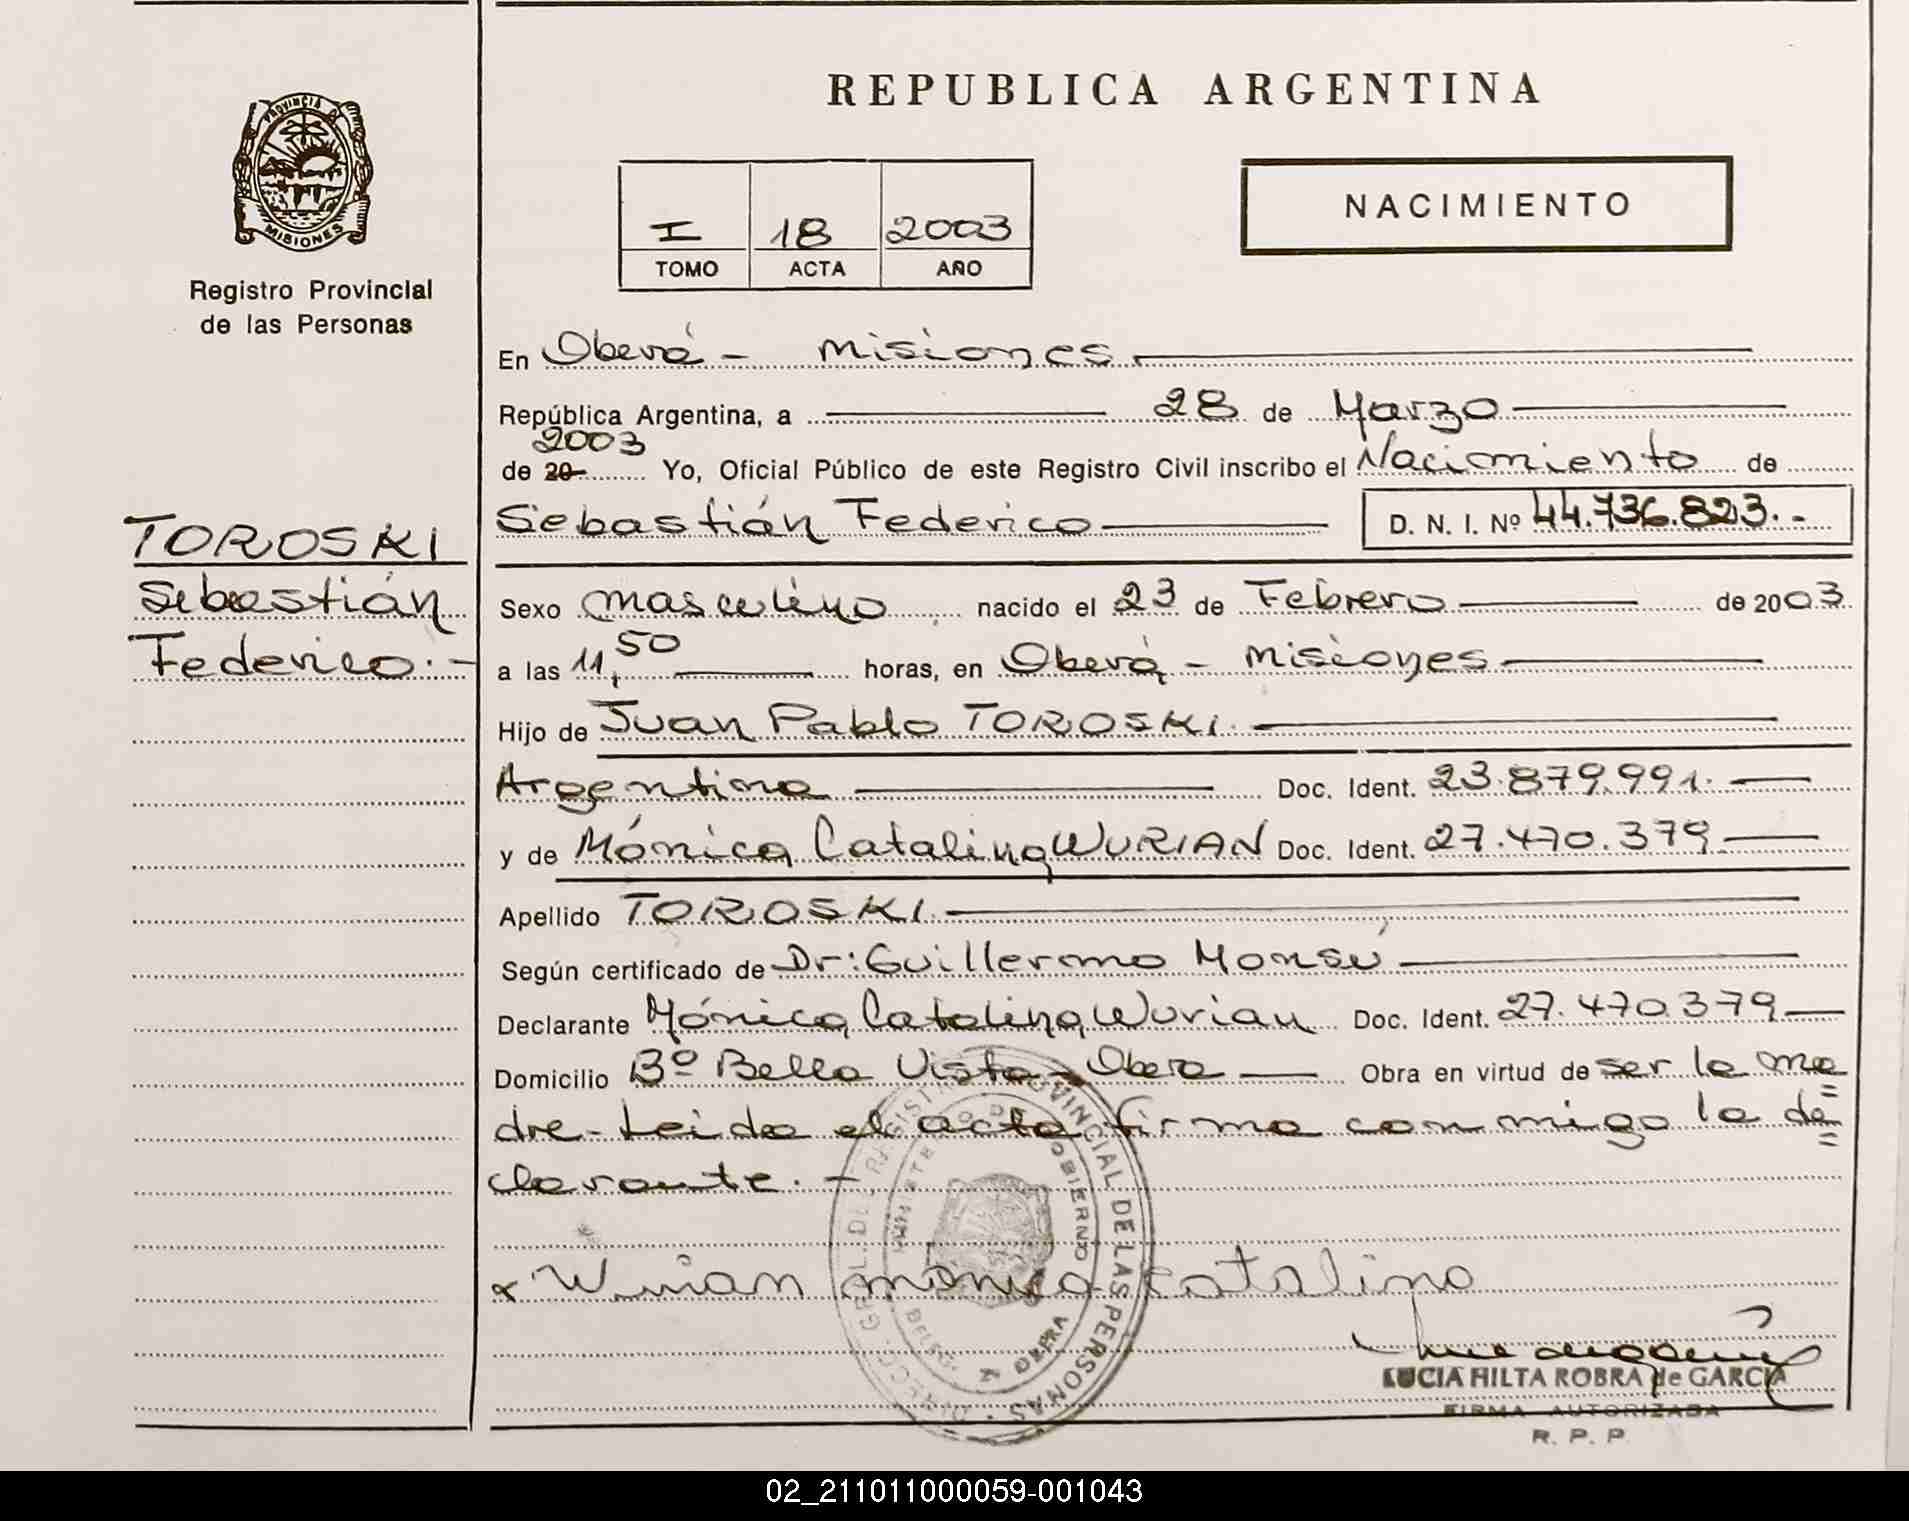 REPUBLICA ARGENTINA
PROVINCIA DE
MISIONES
Registro Provincial
de las Personas
I 18 2003
TOMO ACTA AÑO
NACIMIENTO
En Oberá - Misiones
República Argentina, a 28 de Marzo
2003
de 20 Yo, Oficial Público de este Registro Civil inscribo el Nacimiento de
Sebastián Federico D. N. I. Nº 44.736.823.-
TOROSKI
Sebastián
Federico.-
Sexo masculino nacido el 23 de Febrero de 2003
a las 11,50 horas, en Oberá - Misiones
Hijo de Juan Pablo TOROSKI.
Argentina Doc. Ident. 23.879.991.
y de Mónica Catalina WURIAN Doc. Ident. 27.470.379
Apellido TOROSKI.
Según certificado de Dr: Guillermo Monsú
Declarante Mónica Catalina Wurian Doc. Ident. 27.470.379
Domicilio Bº Bella Vista - Obera Obra en virtud de ser la ma=
dre - Leida el acta firma conmigo la de=
clarante.-
Wurian monica catalina
DIRECC. GRAL. DEL REGISTRO PROVINCIAL DE LAS PERSONAS
MINISTERIO DE GOBIERNO
LUCIA HILTA ROBRA de GARCIA
FIRMA AUTORIZADA
R. P. P
02_211011000059-001043